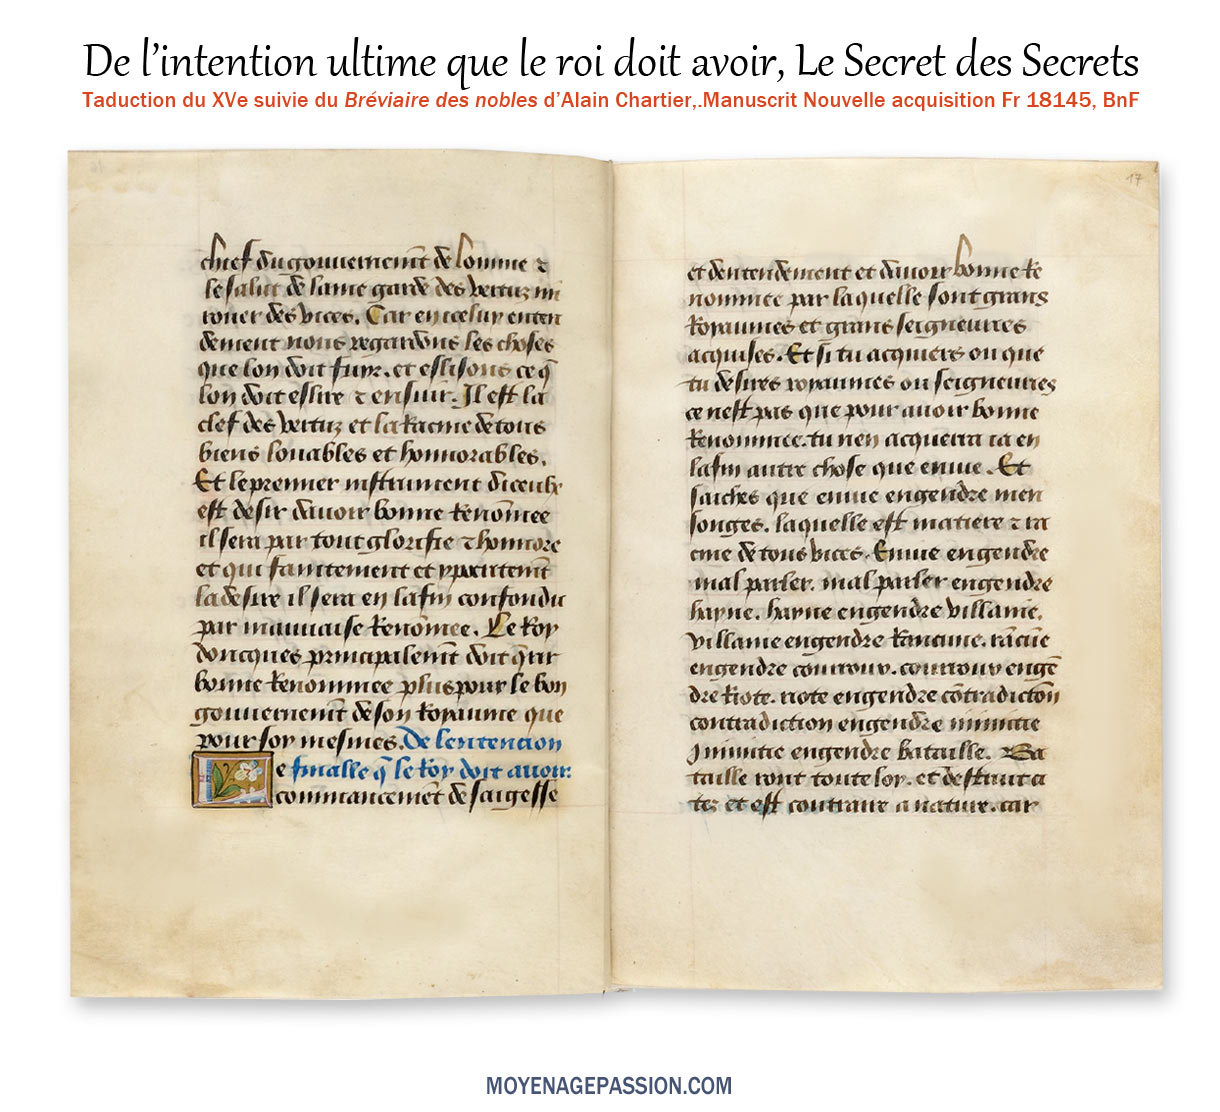 De l’intention ultime que le roi doit avoir, Le Secret des Secrets
Taduction du XVe suivie du Bréviaire des nobles d’Alain Chartier,.Manuscrit Nouvelle acquisition Fr 18145, BnF
chief du gouvernemẽt de lomme ⁊
le salut de lame garde des vertuz mi
rouer des vices. Car en icelui enten
dement nous regardons les choses
que lon doit fuyr. et eslisons ce q̃
lon doit eslire ⁊ ensuir. Il est la
clef des vertuz et la racine de tous
biens louables et honnorables.
Et le premier instrument diceulx
est desir davoir bonne renõmee
il sera par tout glorifie ⁊ honnore
et qui faintement et
la desire il sera en la fin confondu
par mauvaise renõmee. Le roy
doncques principalemẽt doit
bonne renommee plus pour le bon
gouvernemẽt de son royaume que
pour soy mesmes. De lentencion
finalle q̃ le roy doit avoir:
Le commancemẽt de saigesse
17
et dentendement et davoir bonne re
nommee par laquelle sont grans
royaumes et grans seigneuries
acquises. Et si tu acquiers ou que
tu desires royaumes ou seigneuries
ce nest pas que pour avoir bonne
renommee. tu nen acquerra ia en
la fin autre chose que envie. Et
saiches que envie engendre men
songes. laquelle est matiere ⁊ ra
cine de tous vices. Envie engendre
mal parler. mal parler engendre
hayne. hayne engendre villanie.
villanie engendre rancune. rãcũe
engendre courroux. courroux engẽ
dre riote. riote engendre cõtradictõn
contradiction engendre inimitie
Inimitie engendre bataille. Ba
taille ront toute loy. et destruit ci
tez et est contraire a nature. car
MOYENAGEPASSION.COM